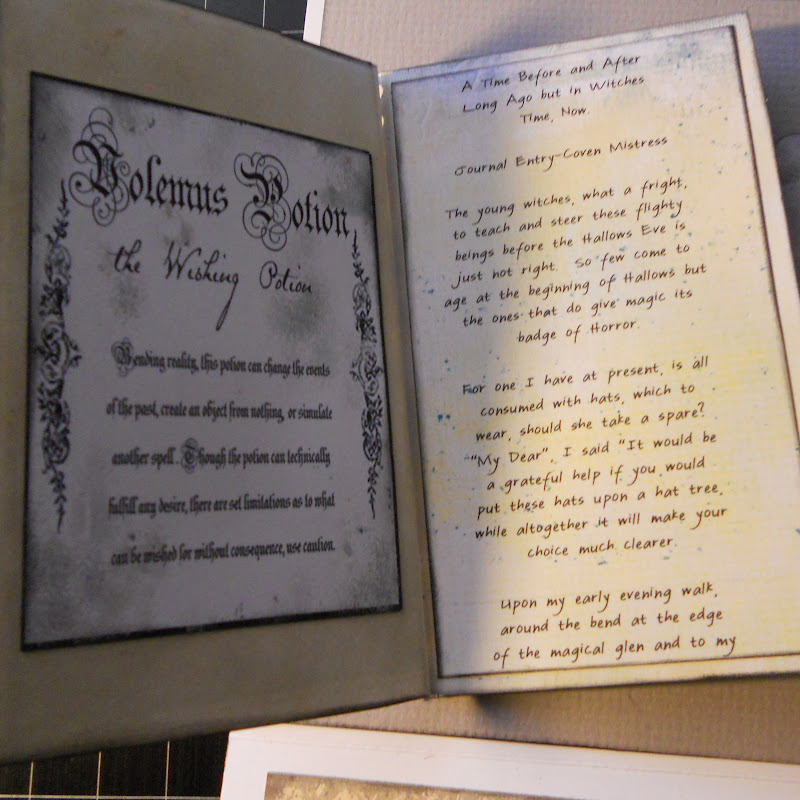 Volemus Potion
the Wishing Potion
Bending reality, this potion can change the events
of the past, create an object from nothing, or simulate
another spell. Though the potion can technically
fulfill any desire, there are set limitations as to what
can be wished for without consequence, use caution.
A Time Before and After
Long Ago but in Witches
Time, Now.
Journal Entry-Coven Mistress
The young witches, what a fright,
to teach and steer these flighty
beings before the Hallows Eve is
just not right. So few come to
age at the beginning of Hallows but
the ones that do give magic its
badge of Horror.
For one I have at present, is all
consumed with hats, which to
wear, should she take a spare?
"My Dear", I said "It would be
a grateful help if you would
put these hats upon a hat tree,
while altogether it will make your
choice much clearer.
Upon my early evening walk,
around the bend at the edge
of the magical glen and to my